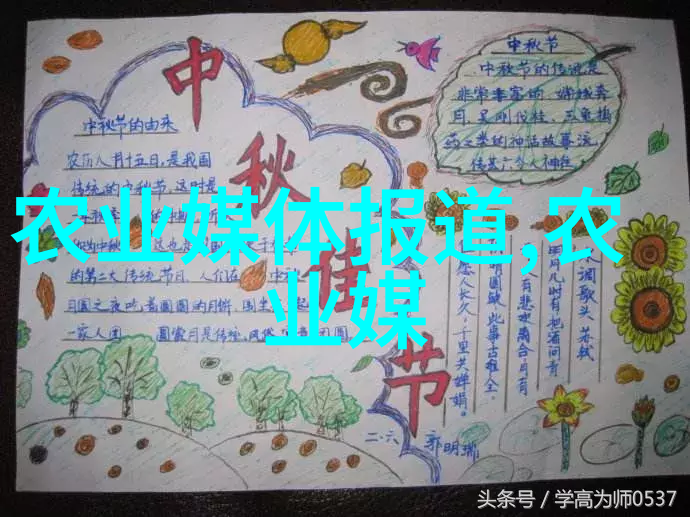 中秋佳节
中秋节的由来
农历八月十五日,是我国
传统的中秋节,这时是
的第二大传统节日,人们在 中秋
月圆之夜吃着圆圆的月饼,
一家人团
中秋节
中秋节的传说是
非常丰富的,嫦娥奔
月,吴刚伐桂,玉兔捣
药之类的神话故事流
传甚
水调歌头 苏轼
明月几时有把酒问青
人有悲欢离合月有
阴晴圆缺,此事古难全。
愿人长久,千里共婵娟。
二.六 郭明瑞
农业媒体报道,农
业媒
头条号/学高为师0537